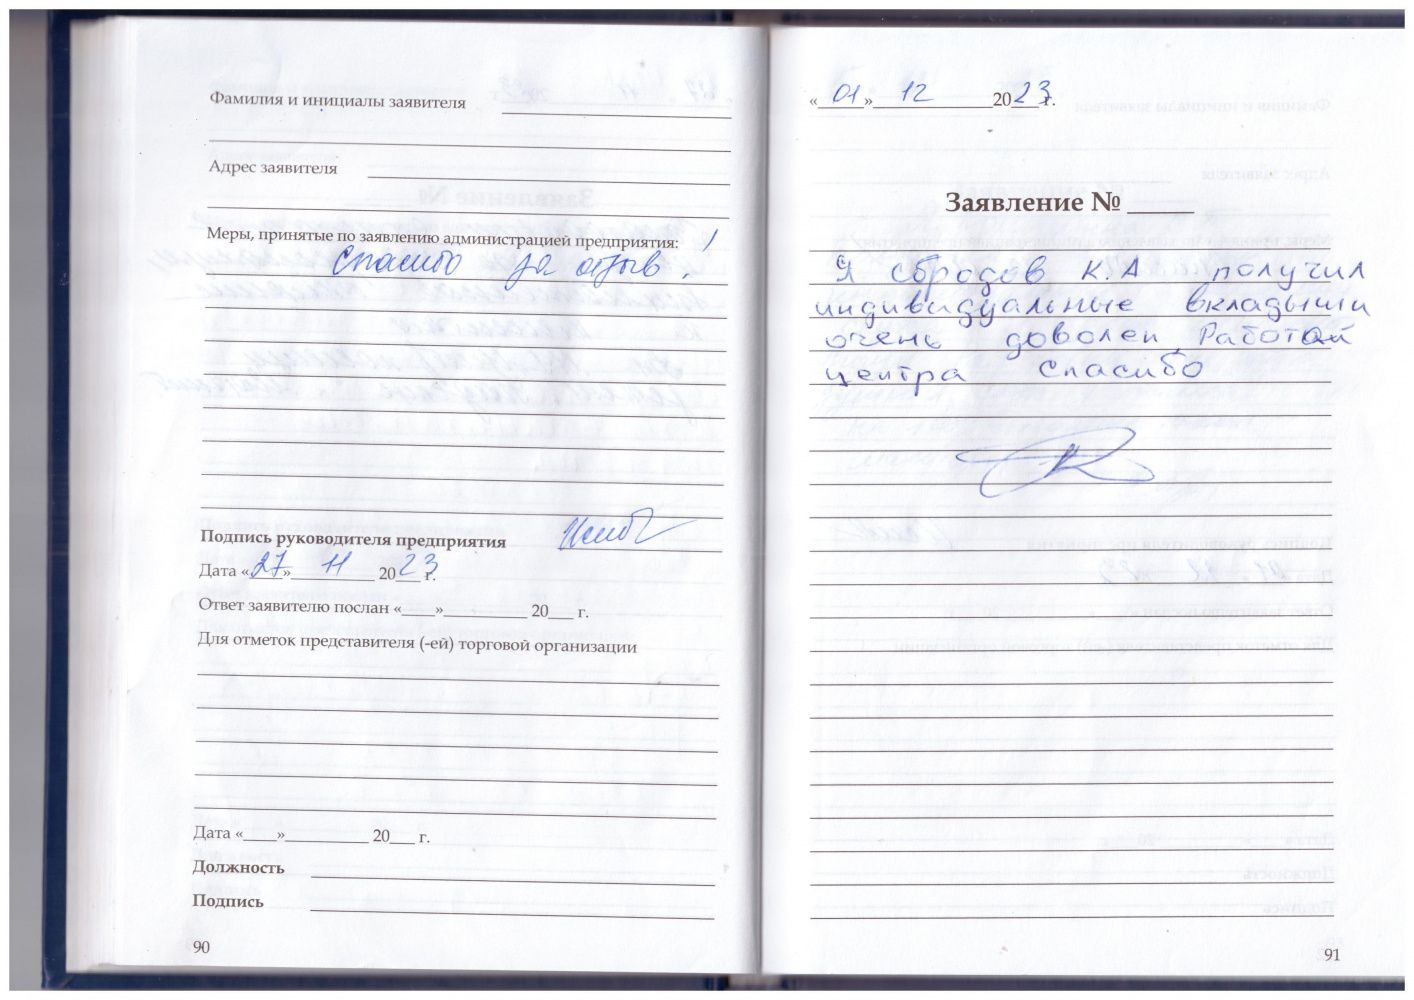 Фамилия и инициалы заявителя
Адрес заявителя
Меры, принятые по заявлению администрацией предприятия:
Спасибо за отзыв!
Подпись руководителя предприятия
Дата «27» 11 2023 г.
Ответ заявителю послан «____»__________ 20___ г.
Для отметок представителя (-ей) торговой организации
Дата «____»__________ 20___ г.
Должность
Подпись
90
«01» 12 2023 г.
Заявление № _____
Я сбродов К.А получил
индивидуальные вкладыши
очень доволен. Работой
центра спасибо
91